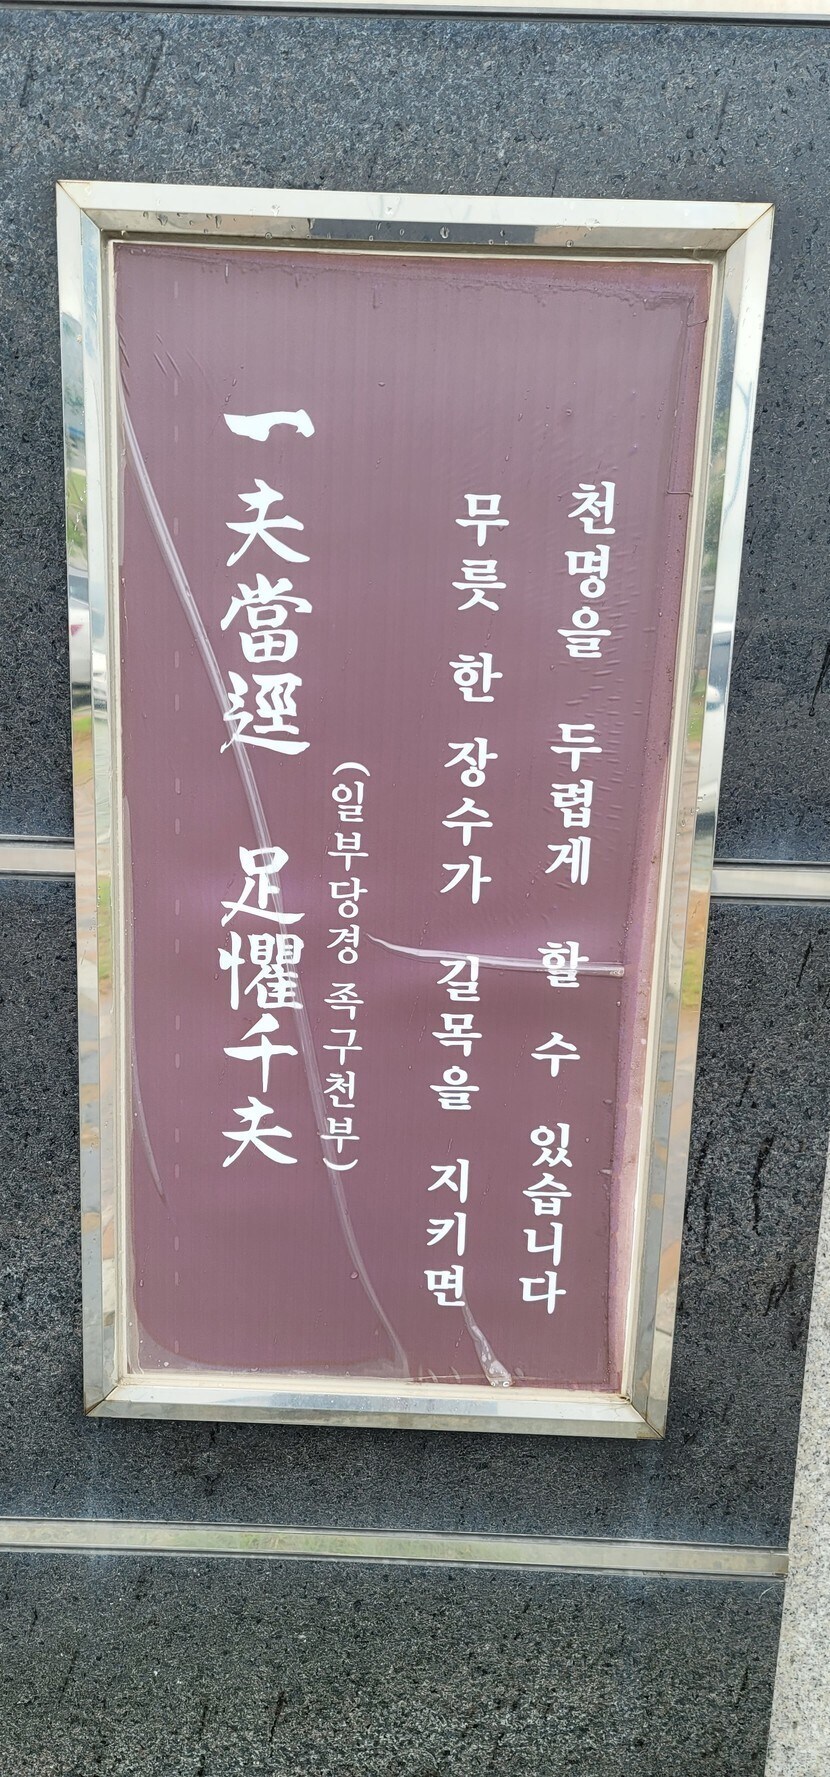 一夫當逕 足懼千夫
(일부당경 족구천부)
무릇 한 장수가 길목을 지키면
천명을 두렵게 할 수 있습니다